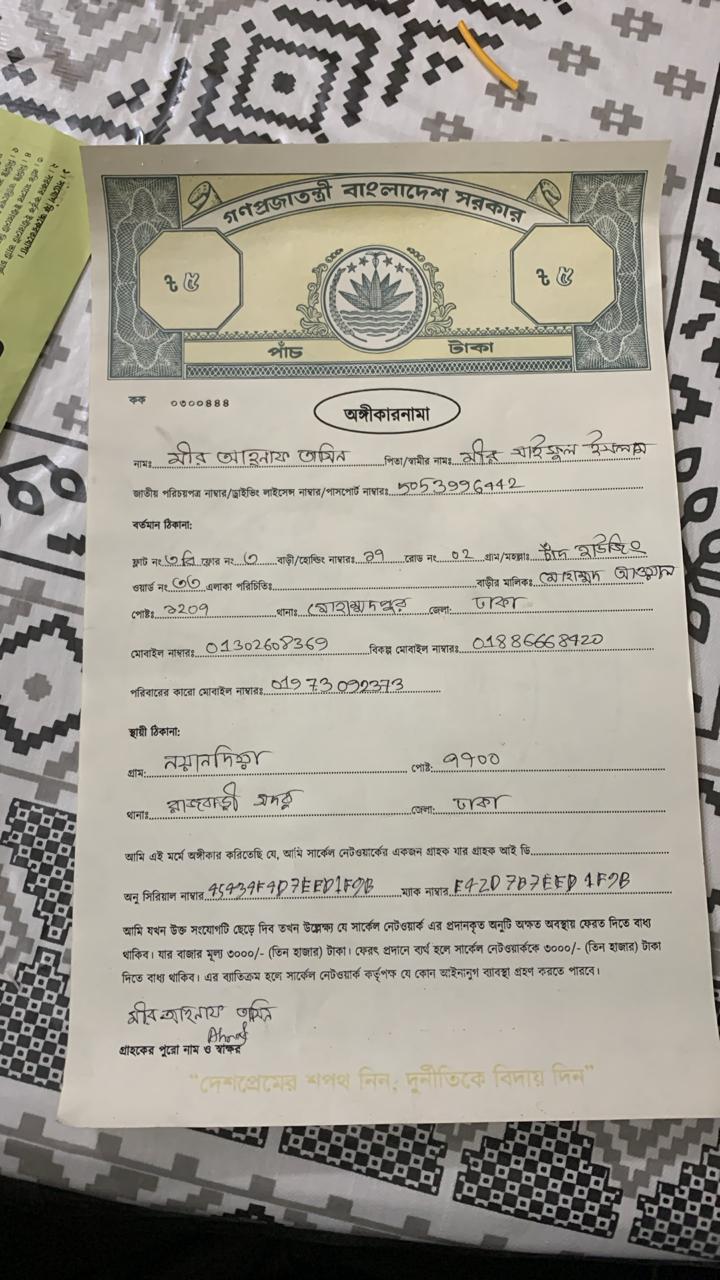 গণপ্রজাতন্ত্রী বাংলাদেশ সরকার
৳ ৫ ৳ ৫
পাঁচ টাকা
কক ০৩০০৪৪৪
অঙ্গীকারনামা
নামঃ মীর আহনাফ তামিন পিতা/স্বামীর নামঃ মীর সাইফুল ইসলাম
জাতীয় পরিচয়পত্র নাম্বার/ড্রাইভিং লাইসেন্স নাম্বার/পাসপোর্ট নাম্বারঃ 5053996442
বর্তমান ঠিকানা:
ফ্লাট নং ৩বি ফ্লোর নং ৩ বাড়ী/হোল্ডিং নাম্বারঃ ১৭ রোড নং ০২ গ্রাম/মহল্লাঃ চাঁদ হাউজিং
ওয়ার্ড নং ৩৩ এলাকা পরিচিতিঃ বাড়ীর মালিকঃ মোহাম্মদ আওয়াল
পোষ্টঃ ১209 থানাঃ মোহাম্মদপুর জেলা: ঢাকা
মোবাইল নাম্বারঃ 01302608369 বিকল্প মোবাইল নাম্বারঃ 01886668420
পরিবারের কারো মোবাইল নাম্বারঃ 01973092373
স্থায়ী ঠিকানা:
গ্রাম: নয়ানদিয়া পোষ্ট: ৭৭00
থানাঃ রাজবাড়ী সদর জেলা: ঢাকা
আমি এই মর্মে অঙ্গীকার করিতেছি যে, আমি সার্কেল নেটওয়ার্কের একজন গ্রাহক যার গ্রাহক আই ডি
অনু সিরিয়াল নাম্বার 45434F4D7EED1F9B ম্যাক নাম্বার E42D7B7EED1F9B
আমি যখন উক্ত সংযোগটি ছেড়ে দিব তখন উল্লেক্ষ্য যে সার্কেল নেটওয়ার্ক এর প্রদানকৃত অনুটি অক্ষত অবস্থায় ফেরত দিতে বাধ্য
থাকিব। যার বাজার মূল্য ৩০০০/- (তিন হাজার) টাকা। ফেরৎ প্রদানে ব্যর্থ হলে সার্কেল নেটওয়ার্ককে ৩০০০/- (তিন হাজার) টাকা
দিতে বাধ্য থাকিব। এর ব্যাতিক্রম হলে সার্কেল নেটওয়ার্ক কর্তৃপক্ষ যে কোন আইনানুগ ব্যাবস্থা গ্রহণ করতে পারবে।
মীর আহনাফ তামিন
Ahnaf
গ্রাহকের পুরো নাম ও স্বাক্ষর
“দেশপ্রেমের শপথ নিন, দুর্নীতিকে বিদায় দিন”